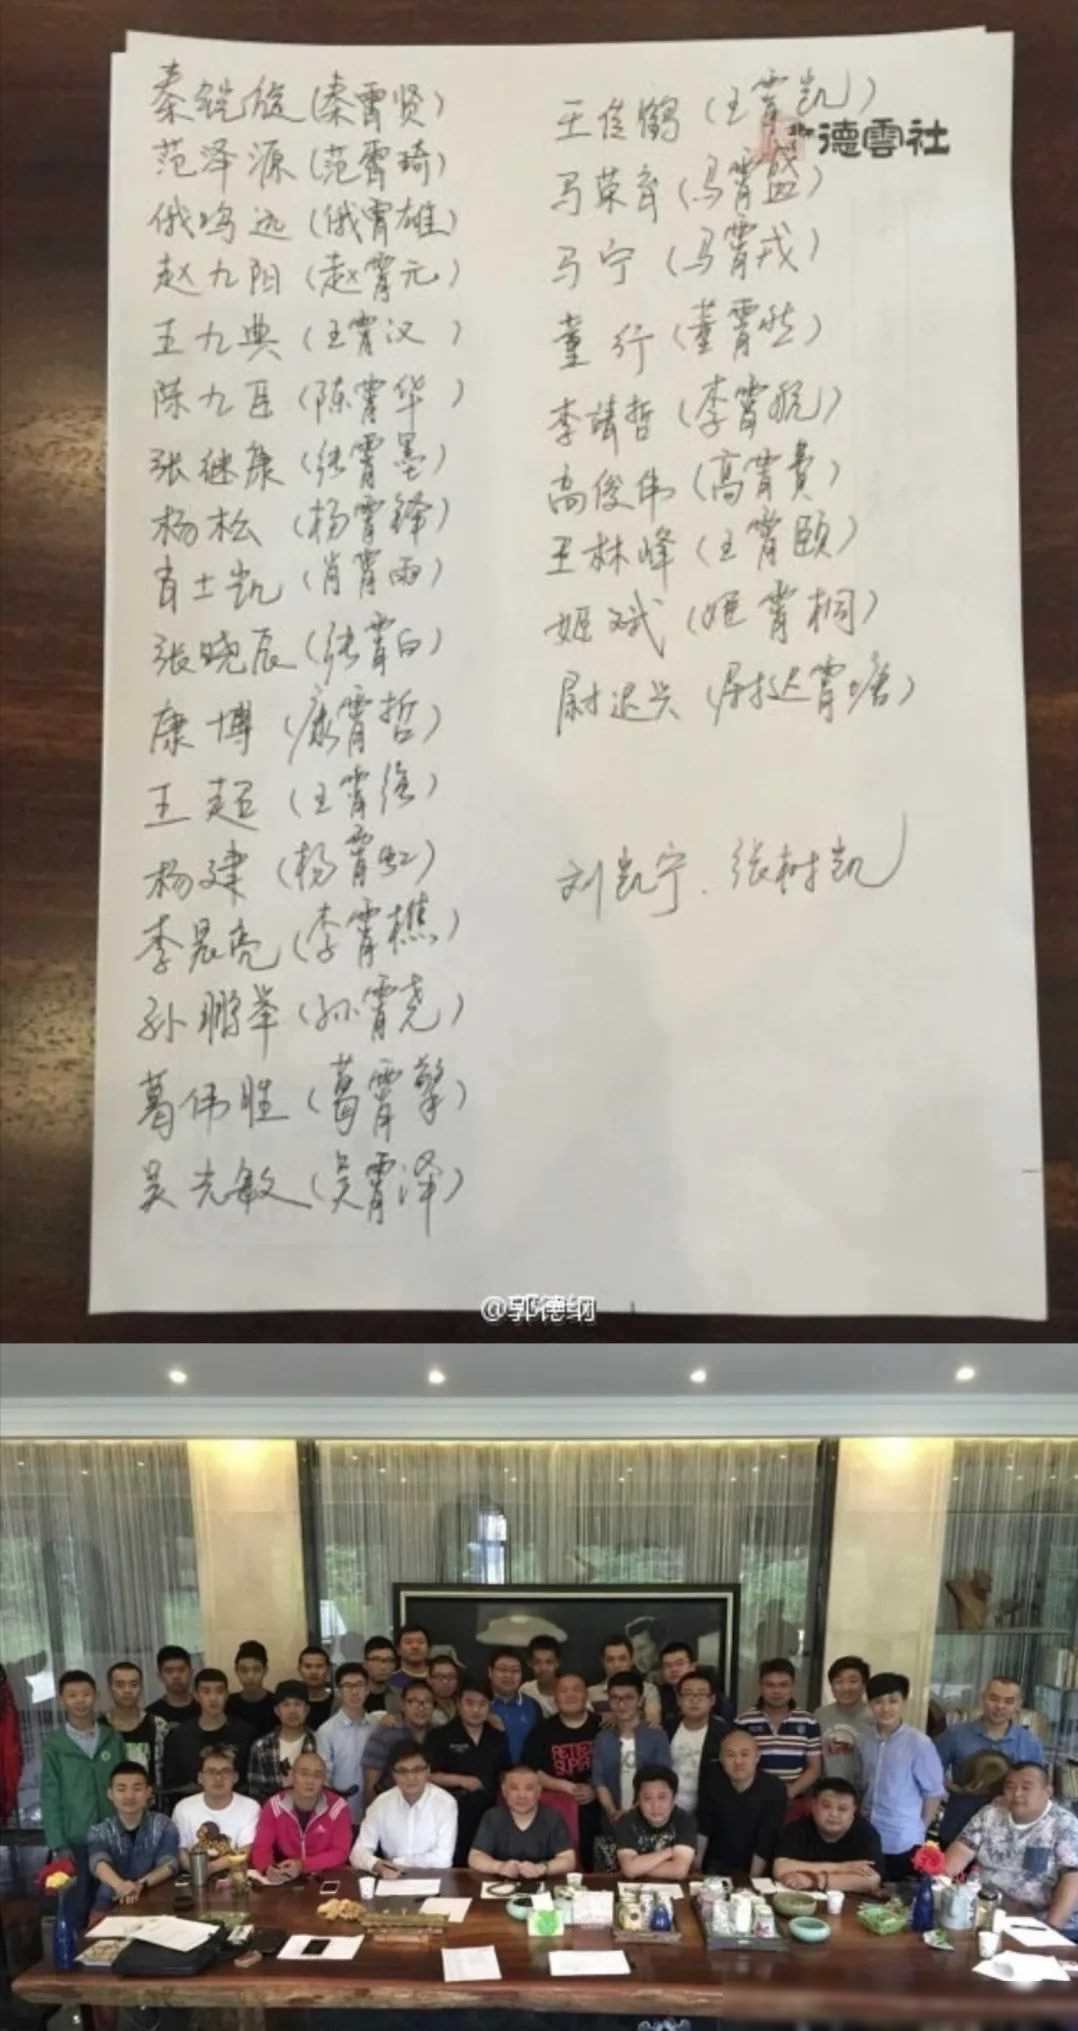 秦凯旋(秦霄贤)
范泽源(范霄琦)
俄鸣远(俄霄雄)
赵九阳(赵霄元)
王九典(王霄汉)
陈九臣(陈霄华)
张继康(张霄墨)
杨松(杨霄锋)
肖士凯(肖霄雨)
张晓辰(张霄白)
康博(康霄哲)
王超(王霄强)
杨建(杨霄虹)
李晨亮(李霄樵)
孙鹏举(孙霄尧)
葛伟胜(葛霄擎)
吴光敏(吴霄泽)
王佳鹤(王霄凯)
德雲社
马荣育(马霄盛)
马宁(马霄戎)
董行(董霄然)
李靖哲(李霄航)
高俊伟(高霄贵)
王林峰(王霄颐)
姬斌(姬霄桐)
尉迟兴(尉迟霄塘)
刘凯宁、张树凯
@郭德纲